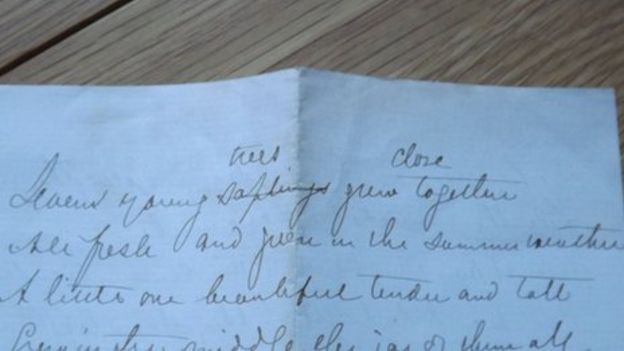 trees close
Seven young saplings grew together
All fresh and green in the summer weather
A little one beautiful tender and tall
Grew in the middle the joy of them all